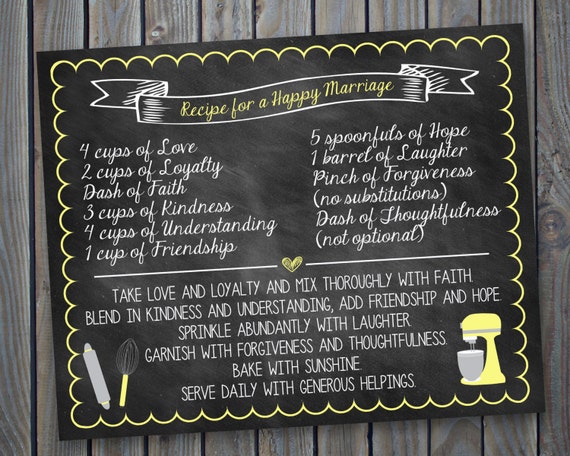 Recipe for a Happy Marriage
4 cups of Love
2 cups of Loyalty
Dash of Faith
3 cups of Kindness
4 cups of Understanding
1 cup of Friendship
5 spoonfuls of Hope
1 barrel of Laughter
Pinch of Forgiveness
(no substitutions)
Dash of Thoughtfulness
(not optional)
TAKE LOVE AND LOYALTY AND MIX THOROUGHLY WITH FAITH.
BLEND IN KINDNESS AND UNDERSTANDING, ADD FRIENDSHIP AND HOPE.
SPRINKLE ABUNDANTLY WITH LAUGHTER.
GARNISH WITH FORGIVENESS AND THOUGHTFULNESS.
BAKE WITH SUNSHINE.
SERVE DAILY WITH GENEROUS HELPINGS.